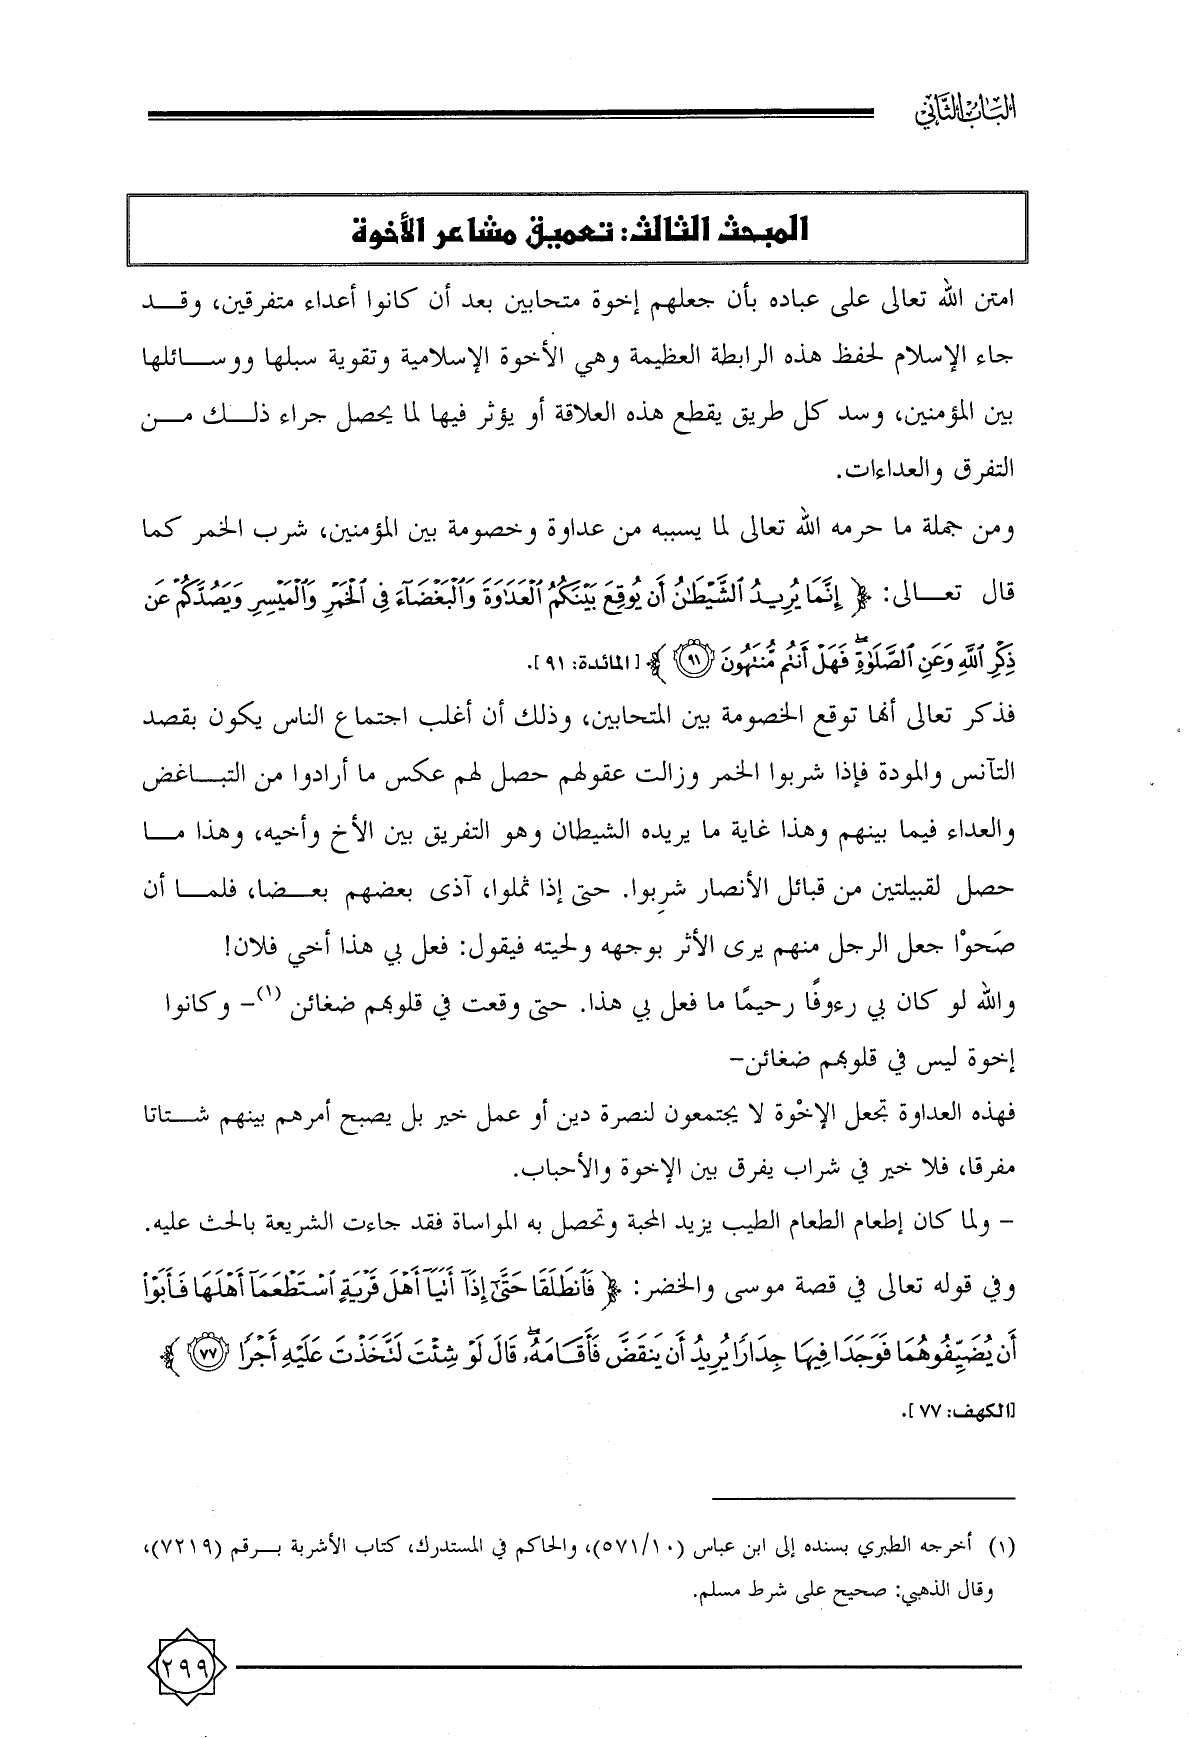 الباب الثاني
المبحث الثالث: تعميق مشاعر الأخوة
امتن الله تعالى على عباده بأن جعلهم إخوة متحابين بعد أن كانوا أعداء متفرقين، وقد
جاء الإسلام لحفظ هذه الرابطة العظيمة وهي الأخوة الإسلامية وتقوية سبلها ووسائلها
بين المؤمنين، وسد كل طريق يقطع هذه العلاقة أو يؤثر فيها لما يحصل جراء ذلك من
التفرق والعداءات.
ومن جملة ما حرمه الله تعالى لما يسببه من عداوة وخصومة بين المؤمنين، شرب الخمر كما
قال تعالى: ﴿ إِنَّمَا يُرِيدُ ٱلشَّيْطَٰنُ أَن يُوقِعَ بَيْنَكُمُ ٱلْعَدَٰوَةَ وَٱلْبَغْضَآءَ فِي ٱلْخَمْرِ وَٱلْمَيْسِرِ وَيَصُدَّكُمْ عَن
ذِكْرِ ٱللَّهِ وَعَنِ ٱلصَّلَوٰةِ ۖ فَهَلْ أَنتُم مُّنتَهُونَ ﴿٩١﴾ ﴾ [المائدة: ٩١].
فذكر تعالى أنها توقع الخصومة بين المتحابين، وذلك أن أغلب اجتماع الناس يكون بقصد
التآنس والمودة فإذا شربوا الخمر وزالت عقولهم حصل لهم عكس ما أرادوا من التباغض
والعداء فيما بينهم وهذا غاية ما يريده الشيطان وهو التفريق بين الأخ وأخيه، وهذا ما
حصل لقبيلتين من قبائل الأنصار شربوا. حتى إذا ثملوا، آذى بعضهم بعضا، فلما أن
صَحوْا جعل الرجل منهم يرى الأثر بوجهه ولحيته فيقول: فعل بي هذا أخي فلان!
والله لو كان بي رءوفًا رحيمًا ما فعل بي هذا. حتى وقعت في قلوبهم ضغائن (١)- وكانوا
إخوة ليس في قلوبهم ضغائن-
فهذه العداوة تجعل الإخْوة لا يجتمعون لنصرة دين أو عمل خير بل يصبح أمرهم بينهم شتاتا
مفرقا، فلا خير في شراب يفرق بين الإخوة والأحباب.
- ولما كان إطعام الطعام الطيب يزيد المحبة وتحصل به المواساة فقد جاءت الشريعة بالحث عليه.
وفي قوله تعالى في قصة موسى والخضر: ﴿ فَٱنطَلَقَا حَتَّىٰٓ إِذَآ أَتَيَآ أَهْلَ قَرْيَةٍ ٱسْتَطْعَمَآ أَهْلَهَا فَأَبَوْا۟
أَن يُضَيِّفُوهُمَا فَوَجَدَا فِيهَا جِدَارًا يُرِيدُ أَن يَنقَضَّ فَأَقَامَهُۥ ۖ قَالَ لَوْ شِئْتَ لَتَّخَذْتَ عَلَيْهِ أَجْرًا ﴿٧٧﴾ ﴾
[الكهف: ٧٧].
(١) أخرجه الطبري بسنده إلى ابن عباس (٥٧١/١٠)، والحاكم في المستدرك، كتاب الأشربة برقم (٧٢١٩)،
وقال الذهبي: صحيح على شرط مسلم.
٢٩٩